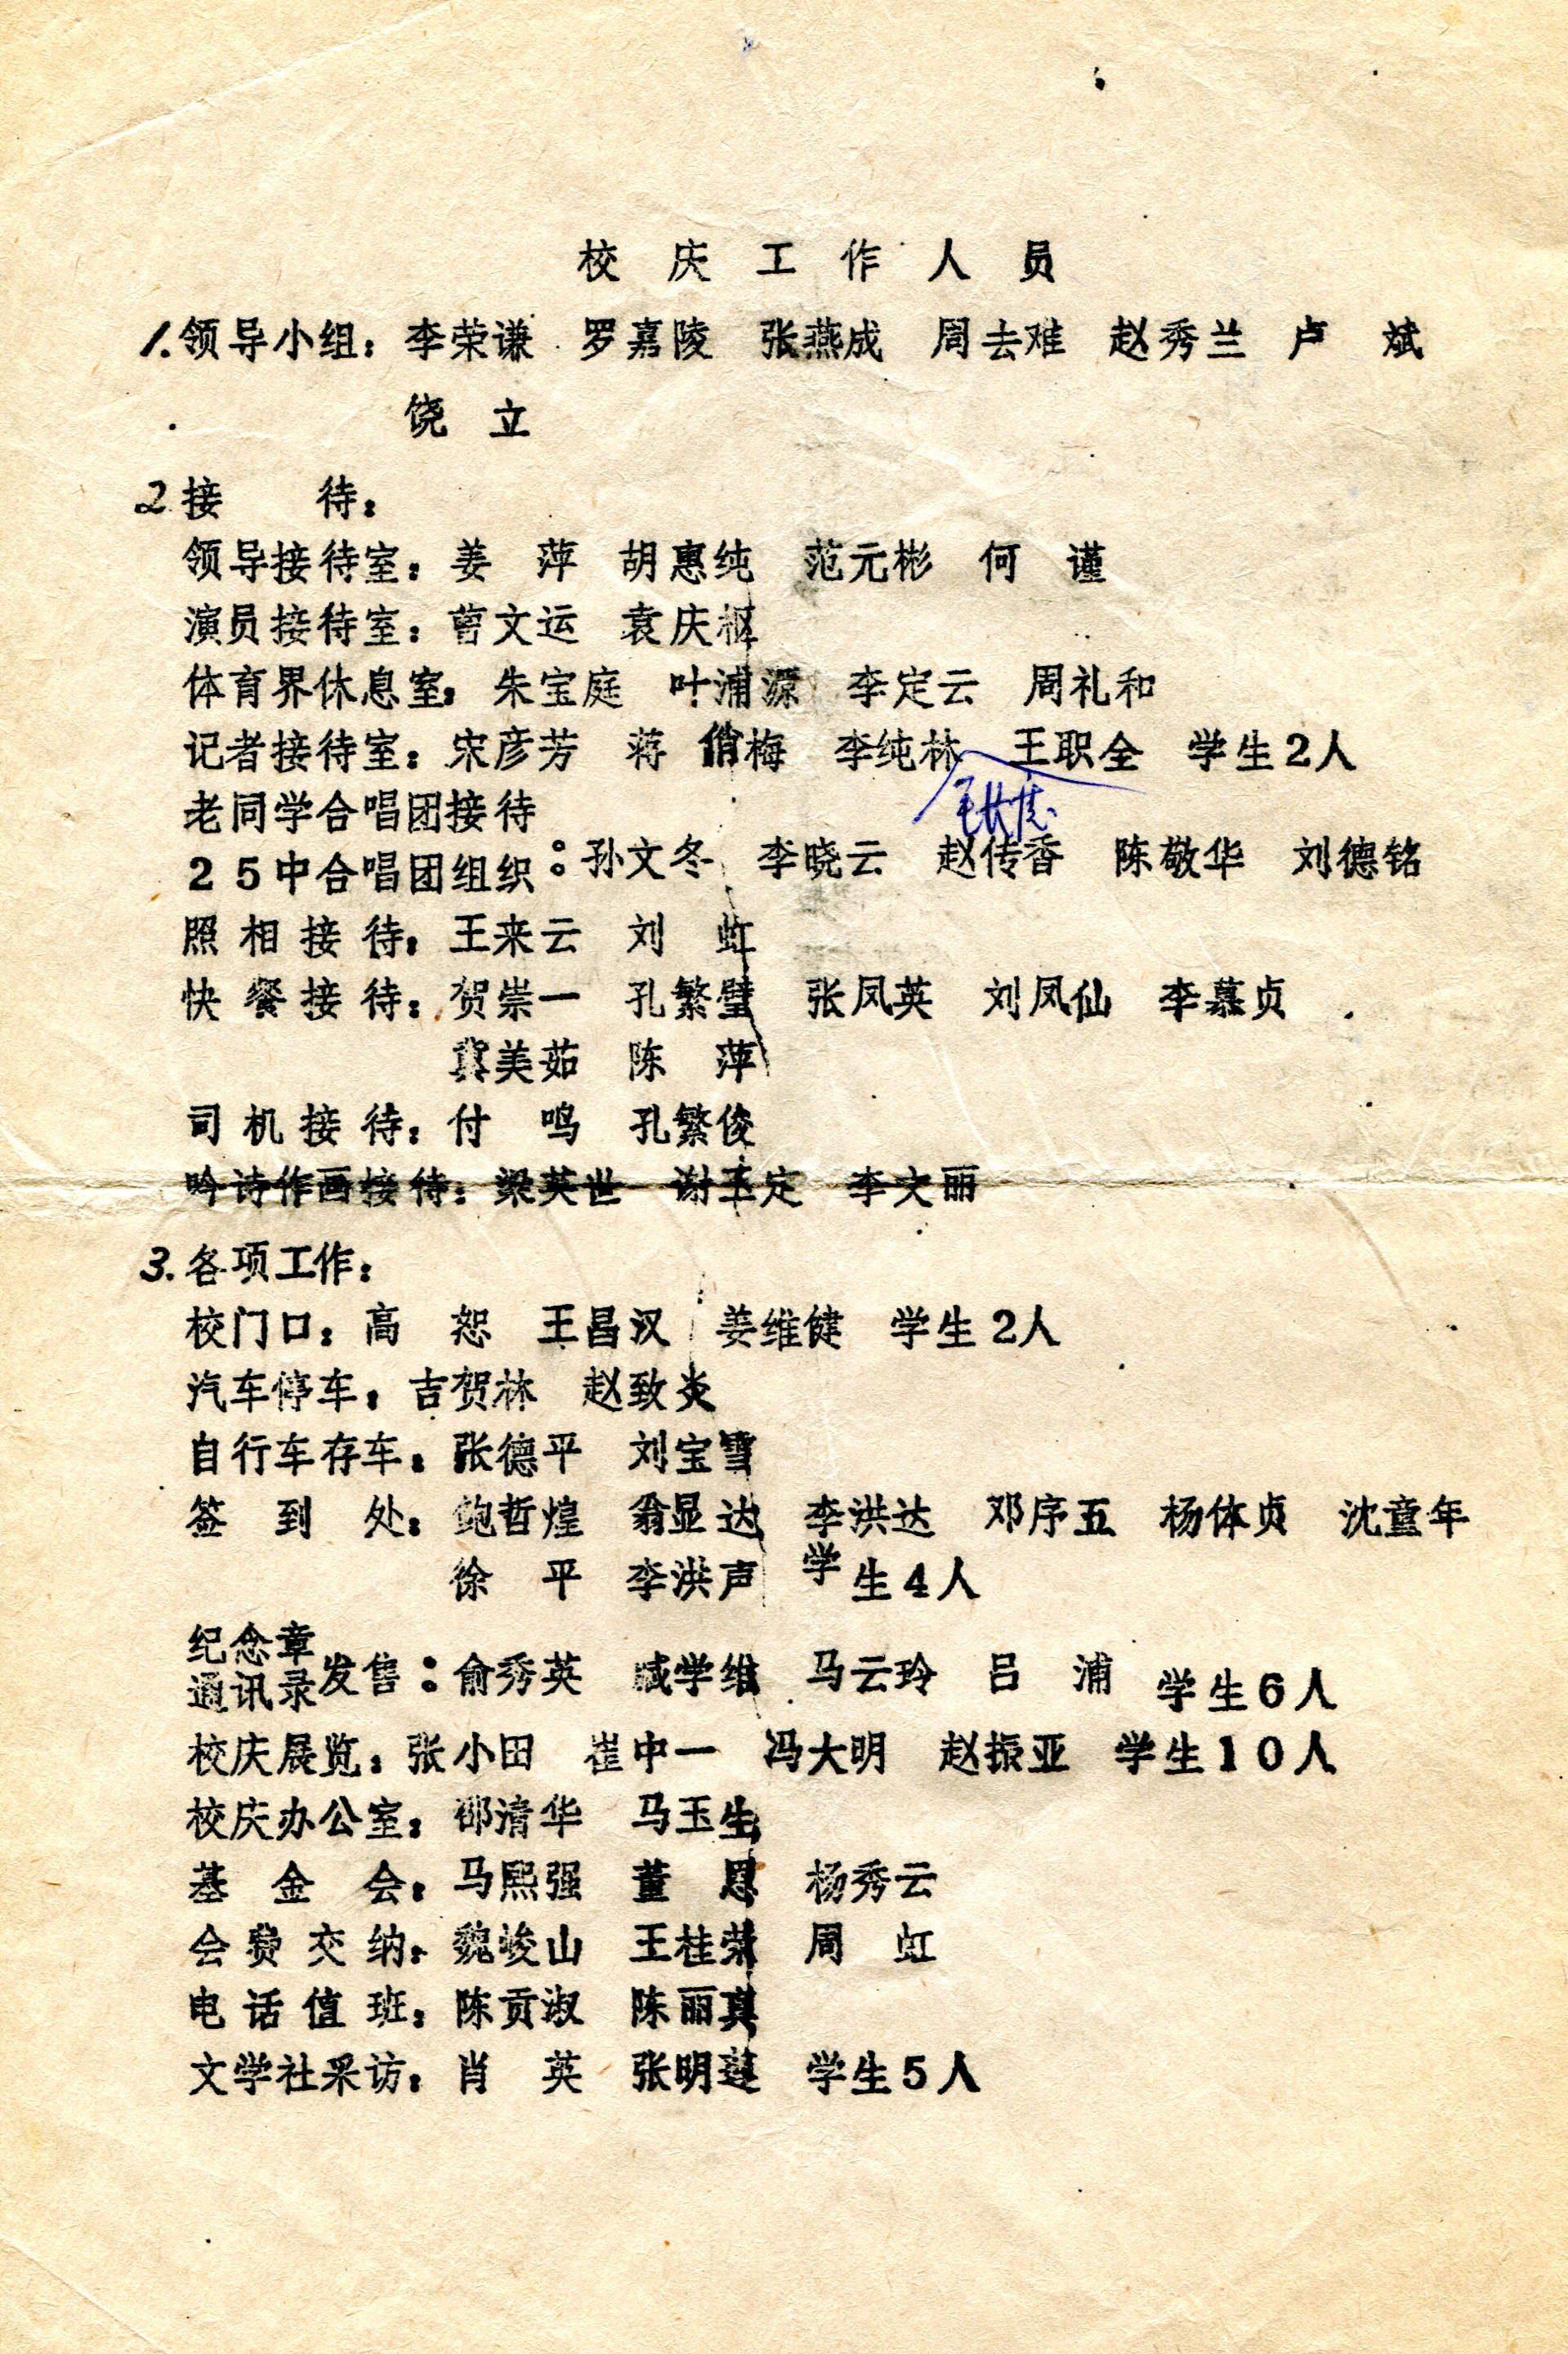 校庆工作人员
1.领导小组：李荣谦 罗嘉陵 张燕成 周去难 赵秀兰 卢 斌
饶 立
2接 待：
领导接待室：姜 萍 胡惠纯 范元彬 何 谨
演员接待室：曹文运 袁庆枢
体育界休息室：朱宝庭 叶浦源 李定云 周礼和
记者接待室：宋彦芳 蒋俏梅 李纯林 王职全 学生2人
老同学合唱团接待
25中合唱团组织：孙文冬 李晓云 赵传香 陈敬华 刘德铭
照相接待：王来云 刘 虹
快餐接待：贺崇一 孔繁璧 张凤英 刘凤仙 李慕贞
冀美茹 陈 萍
司机接待：付 鸣 孔繁俊
吟诗作画接待：梁英世 谢玉定 李文丽
3.各项工作：
校门口：高 恕 王昌汉 姜维健 学生2人
汽车停车：吉贺林 赵致炎
自行车存车：张德平 刘宝雪
签到处：鲍哲煌 翁显达 李洪达 邓序五 杨体贞 沈童年
徐 平 李洪声 学生4人
纪念章
通讯录发售：俞秀英 臧学维 马云玲 吕 浦 学生6人
校庆展览：张小田 崔中一 冯大明 赵振亚 学生10人
校庆办公室：邵清华 马玉生
基金会：马熙强 董 杨秀云
会费交纳：魏峻山 王桂荣 周 虹
电话值班：陈贡淑 陈丽真
文学社采访：肖 英 张明莲 学生5人